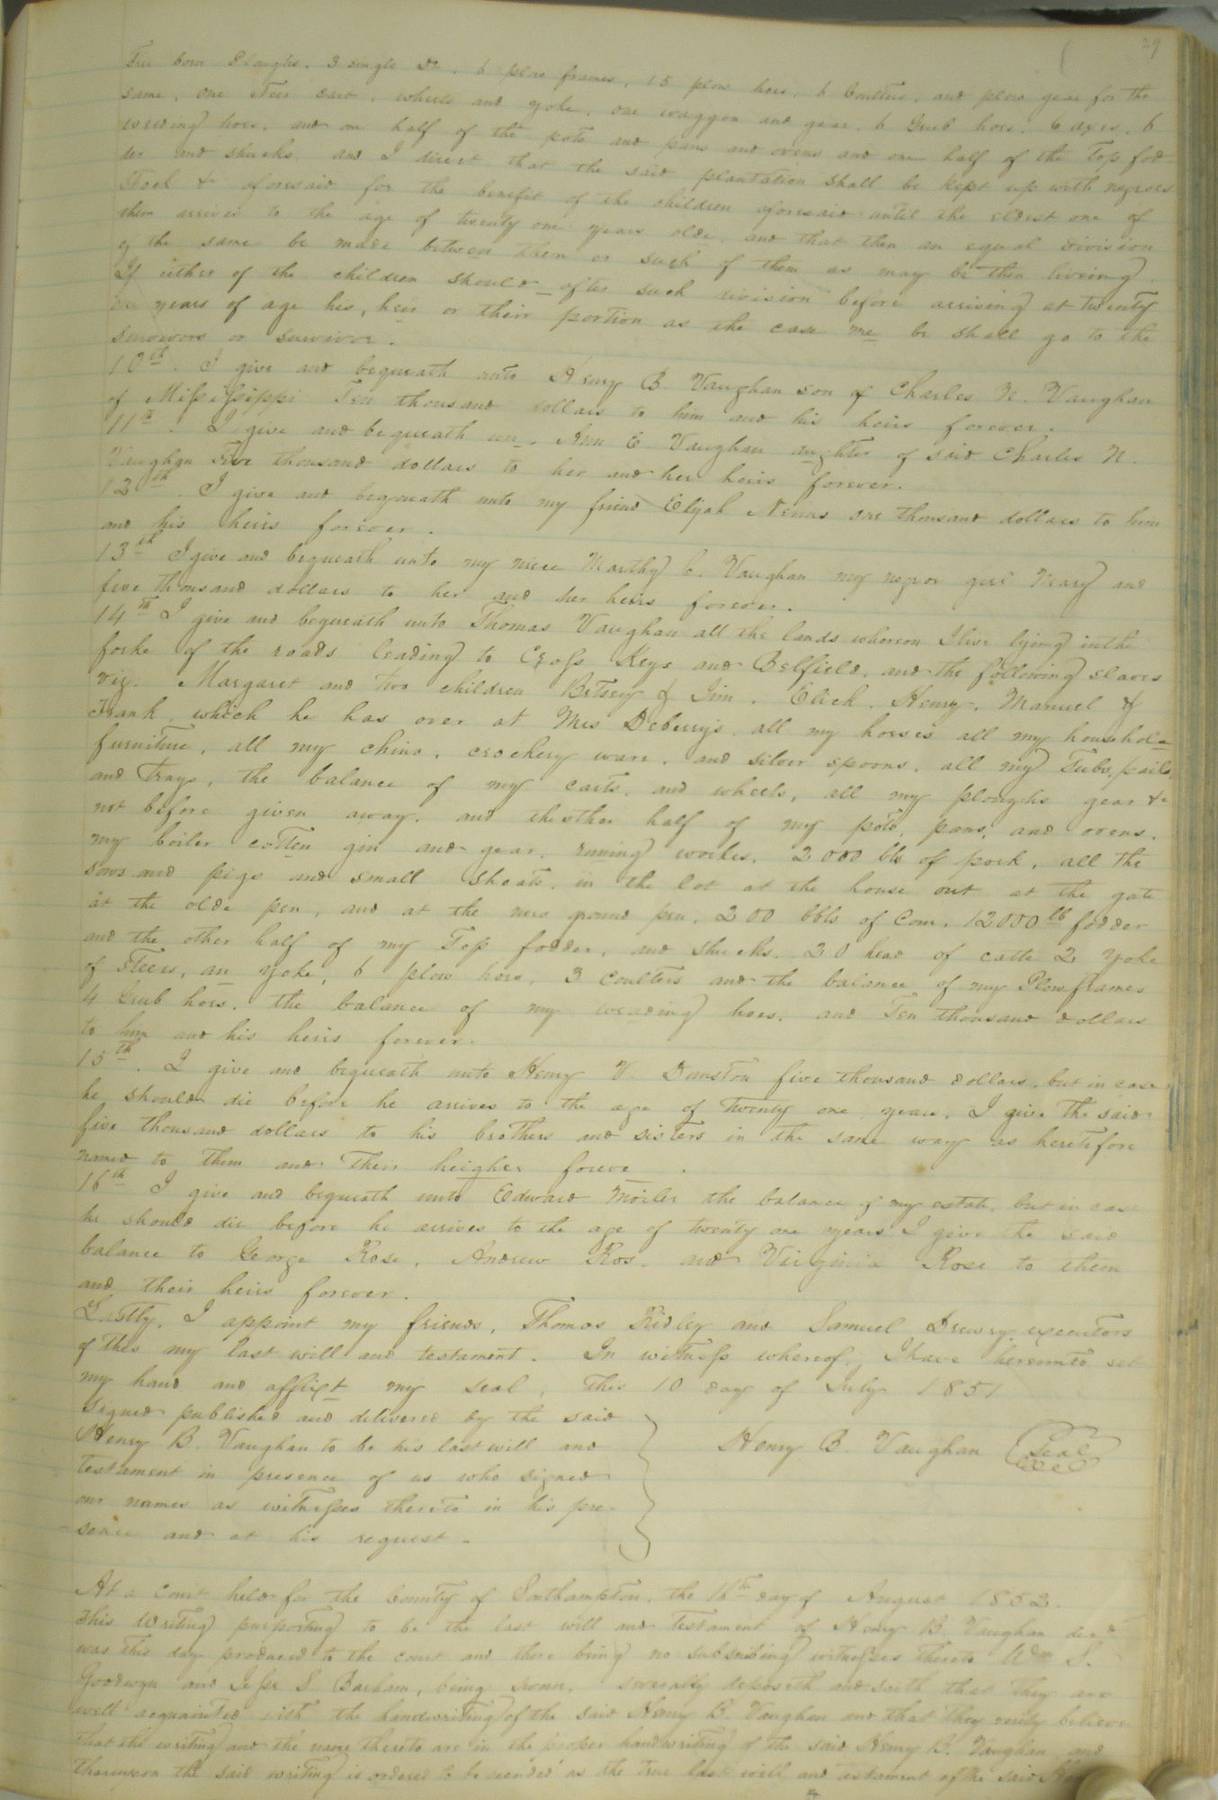 29
Ten corn Ploughs, 3 single Do, 6 plow frames, 15 plow hoes, 6 Coulters, and plow gear for the
same, one Steer cart, wheels and yoke, one waggon and gear, 6 Grub hoes, 6 axes, 6
weeding hoes, and one half of the pots and pans and ovens and one half of the Top fod-
der and shucks and I direct that the said plantation shall be kept up with negroes
Stock &c aforesaid for the benefit of the children aforesaid until the eldest one of
them arrives to the age of twenty one years olde, and that then an equal division
of the same be made between them or such of them as may be then living
If either of the children should after such division before arriving at twenty
one years of age his, heir or their portion as the case me be shall go to the
survivors or survivor.
10th. I give and bequeath unto Henry B Vaughan son of Charles N. Vaughan
of Mississippi Ten thousand dollars to him and his heirs forever.
11th. I give and bequeath un Ann E Vaughan aughter of said Charles N.
Vaughan five thousand dollars to her and her heirs forever.
12th. I give and bequeath unto my friend Elijah one thousand dollars to him
and his heirs forever.
13th I give and bequeath unto my niece Marthy C. Vaughan my negroe girl Mary and
five thousand dollars to her and her heirs forever.
14th I give and bequeath unto Thomas Vaughan all the lands whereon I live lying in the
forke of the roads leading to Cross Keys and Belfield, and the following slaves
viz. Margaret and two children Betsey & Jim, Click, Henry, Manuel &
Frank, which he has over at Mrs Deberrys, all my horses all my household
furniture, all my china, crockery ware, and silver spoons, all my Tubs, pails
and trays, the balance of my carts, and wheels, all my ploughs gear &c
not before given away, and the other half of my pots, pans, and ovens.
my boiler cotten gin and gear, runing workes, 2000 lbs of pork, all the
sows and pigs and small shoats, in the lot at the house out at the gate
at the olde pen, and at the new ground pen, 200 bbls of Corn, 12000 lb fodder
and the other half of my Top fodder, and shucks, 20 head of catte 2 yoke
of steers, an yoke, 6 plow hoes, 3 coulters and the balance of my Plow frames
4 Grub hoes, the balance of my weading hoes, and Ten thousand dollars
to him and his heirs forever.
15th. I give and bequeath unto Henry V. Dunston five thousand dollars, but in case
he should die before he arrives to the age of twenty one years, I give the said
five thousand dollars to his brothers and sisters in the same way as heretofore
named to them and their heigher foreve .
16th I give and bequeath unto Edward the balance of my estate, but in case
he should die before he arrives to the age of twenty one years I give the said
balance to George Rose, Andrew Ros and Virginia Rose to them
and their heirs forever.
Lastly. I appoint my friends, Thomas Ridley and Samuel Drewry executors
of this my last will and testament. In witness whereof, I have hereunto set
my hand and affixt my seal, this 10 day of July 1851
Signed published and delivered by the said
Henry B. Vaughan to be his last will and
testament in presence of us who signed
our names as witnesses thereto in his pre-
sence and at his request.
Henry B. Vaughan Seal
At a court held for the County of Southampton, the 16th day of August 1852.
This writing purporting to be the last will and testament of Henry B Vaughan decd
was this day produced to the court and there being no subscribing witnesses thereto Wm S.
Goodwyn and Jesse S Barham, being sworn, severally deposeth and saith that they are
well acquainted with the handwriting of the said Henry B. Vaughan and that they verily believe
that the writing and the name thereto are in the proper handwriting of the said Henry B. Vaughan and
thereupon the said writing is ordered to be recorded as the true last will and testament of the said